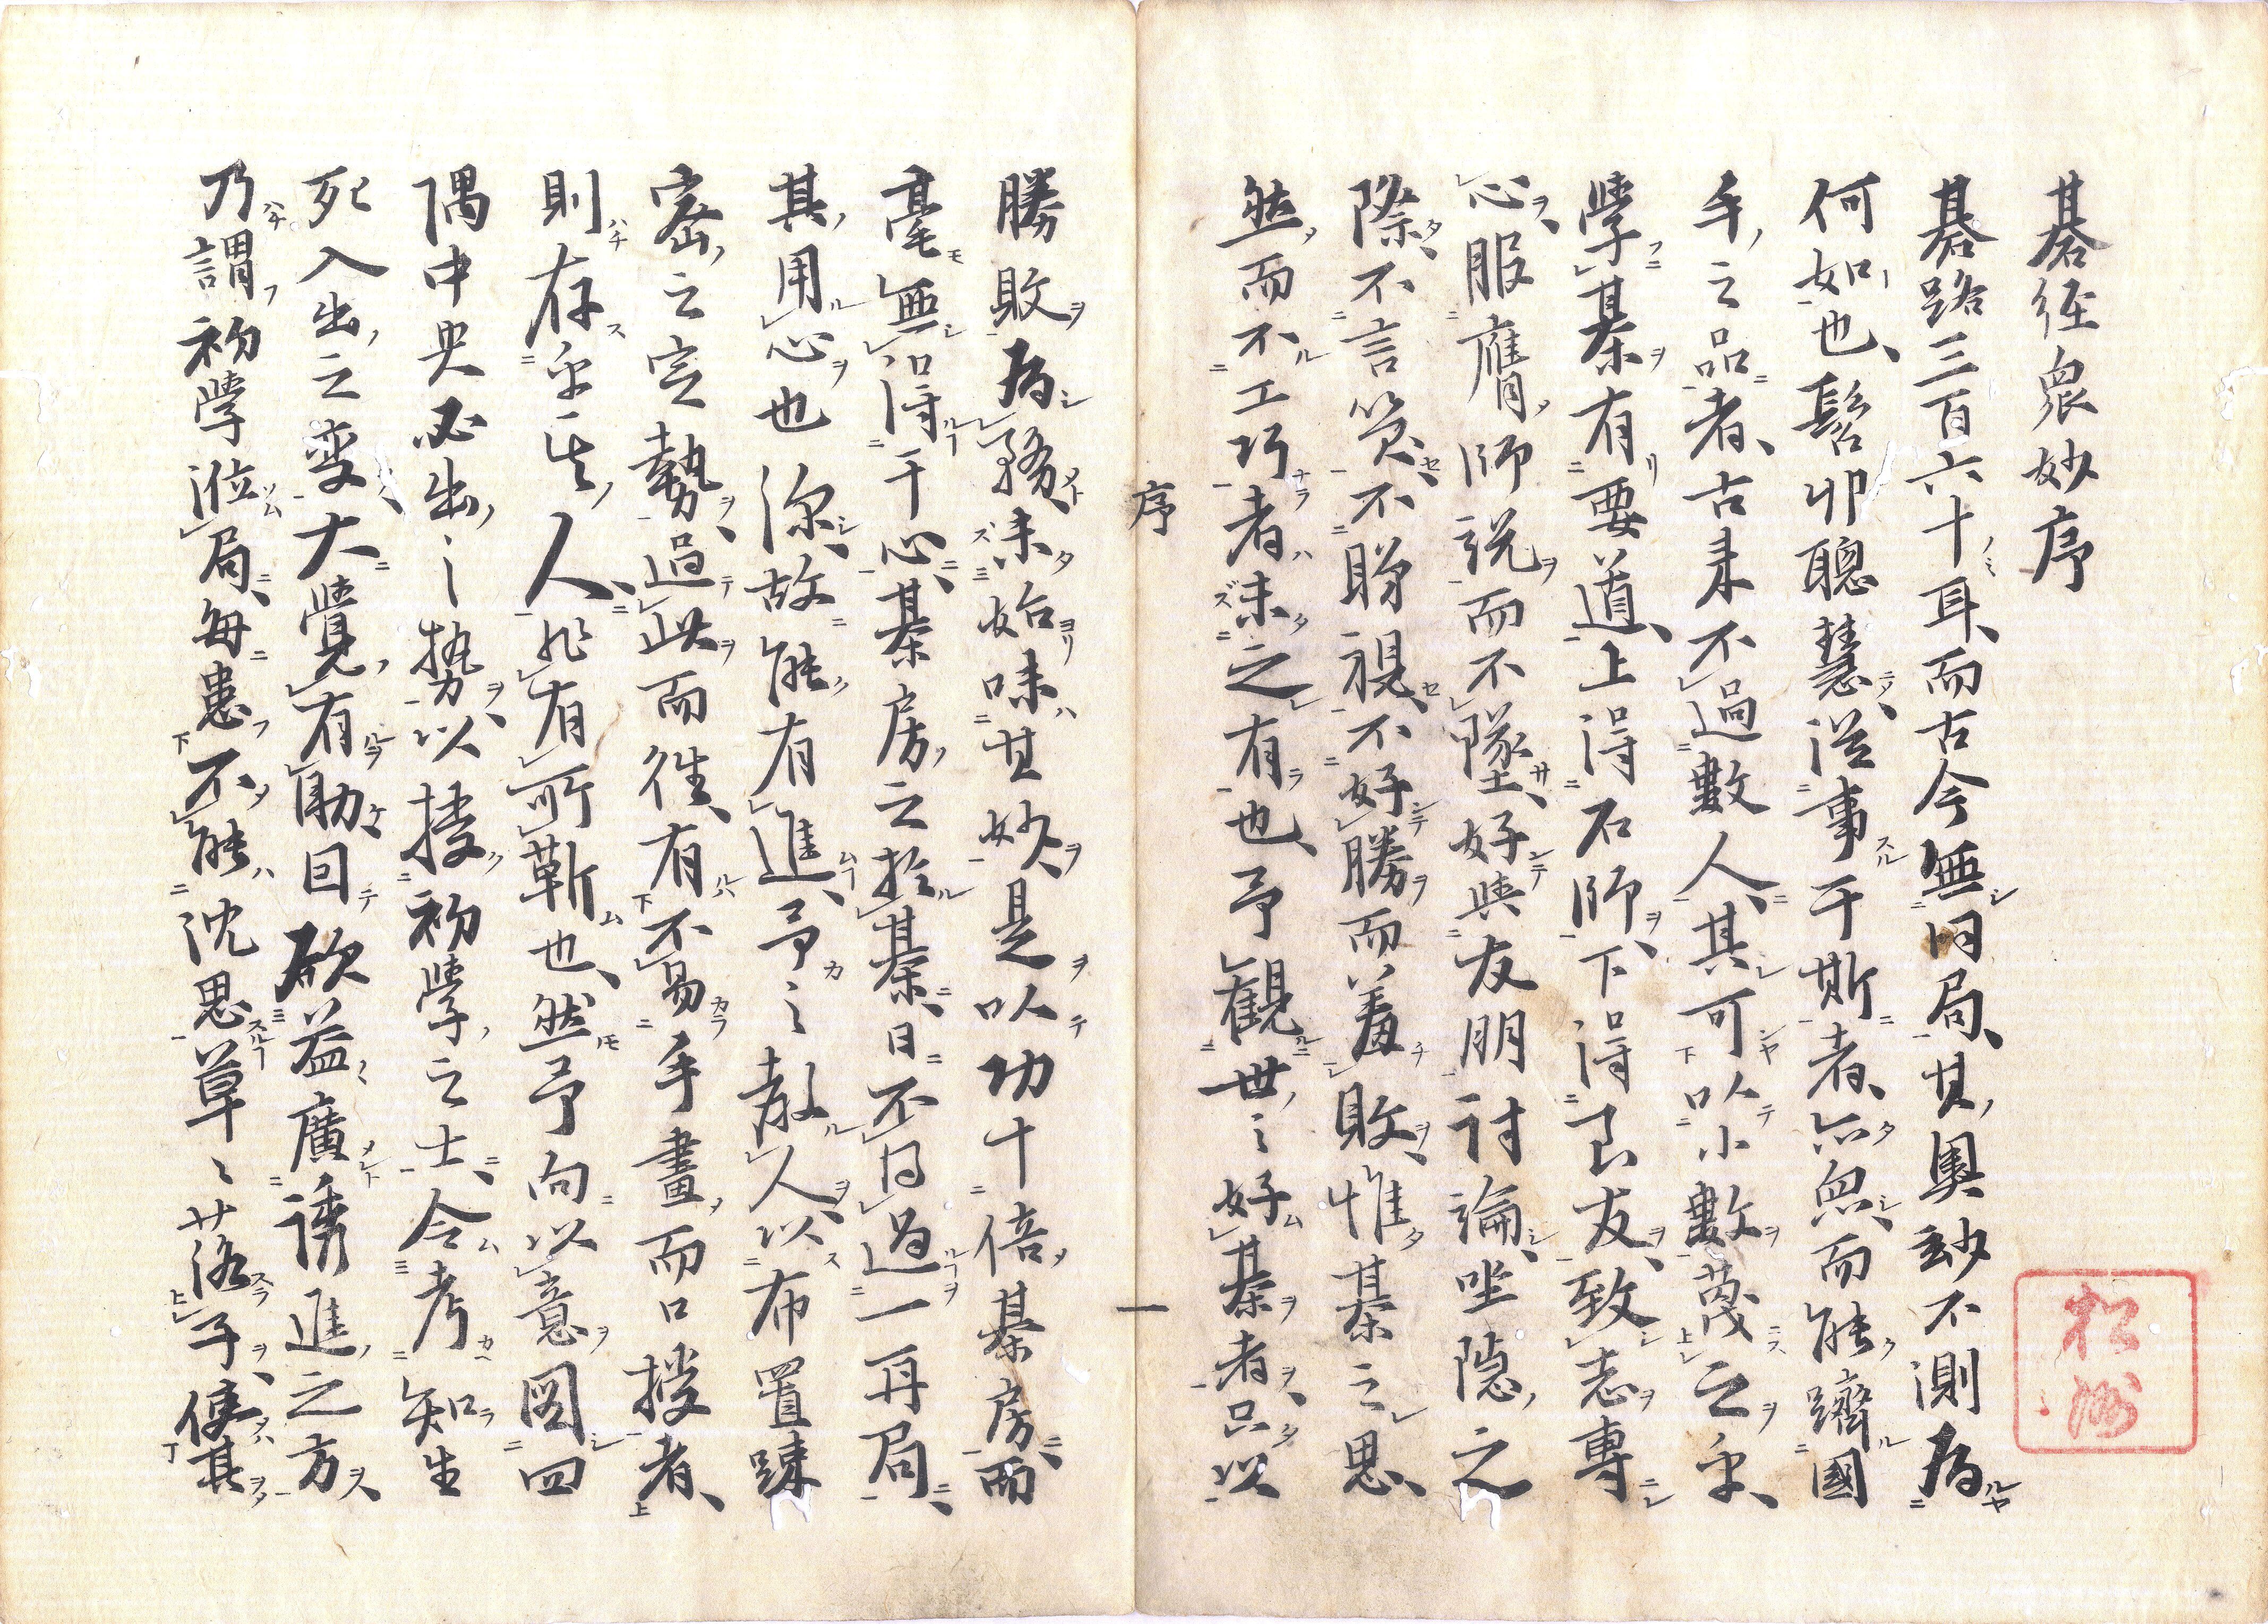 碁經衆妙序
碁路三百六十耳而古今無同局其奧玅不測為
何如也髫丱聰慧從事于斯者亦衆而能躋國
手之品者古来不過數人其可以小數蔑之乎
學棊有要道上得石師下得良友致志專
心服膺師説而不墜好與友朋討論坐隠之
際不言笑不眄視不好勝而羞敗惟棊之思
然而不工巧者未之有也予觀世之好棊者只以
序
一
勝敗為務未始味其妙是以功十倍棊房而
毫無得于心棊房之於棊日不得過一再局
其用心也深故能有進予之教人以布置踈
密之定勢過此而徃有不易手畫而口授者
則存乎其人非有可靳也然予向以意図四
隅中央必出之勢以授初學之士令考知生
死入出之変大覺有助因欲益廣誘進之方
乃謂初學涖局每患不能沈思草々落子使其
松洲